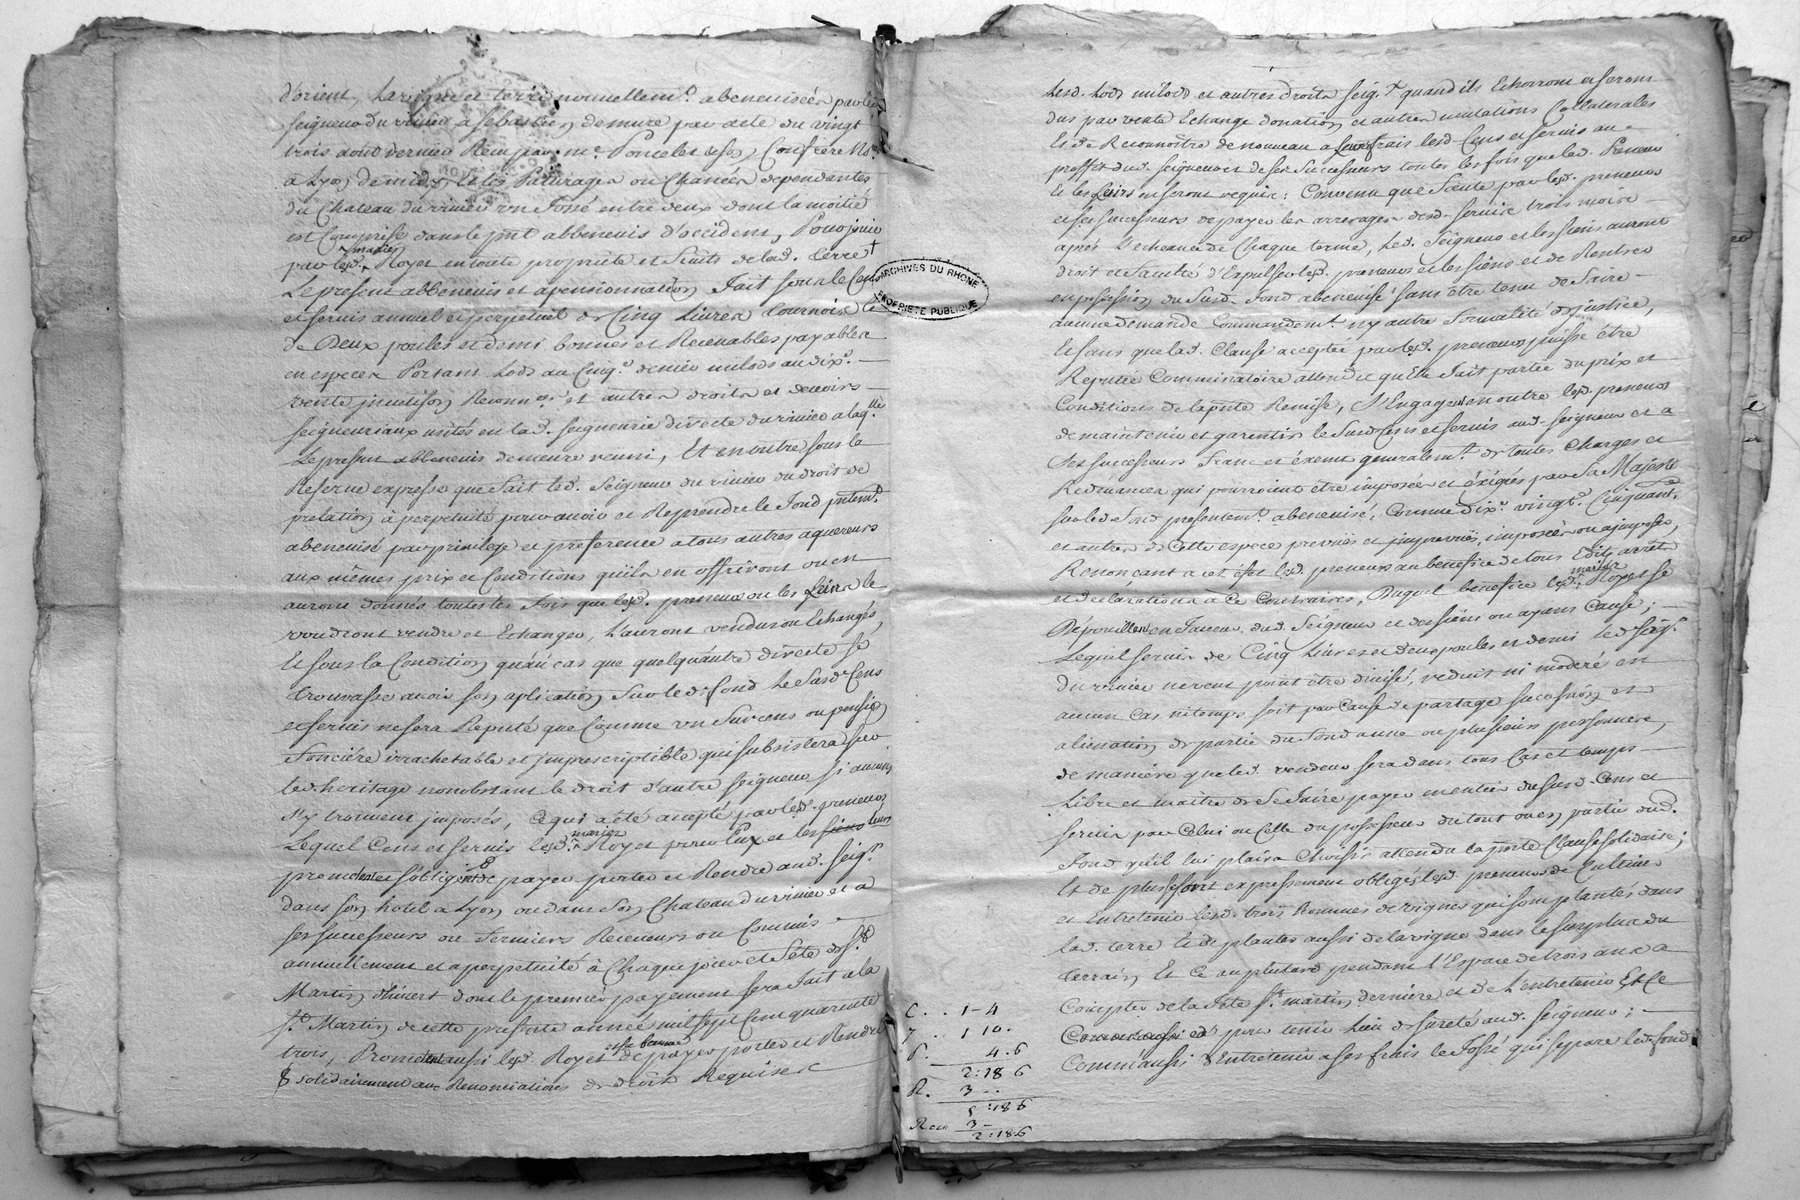 d'orient, La vigne et terre nouvellem.t abenevisée par led.
seigneur du vivier a sebastien demure par acte du vingt
trois aoust dernier Recu par m.e Poncelet & son Confrere No.re
a Lyon de midy et les Paturages ou Chanées dependantes
du Chateau du vivier un Fossé entre deux dont la moitié
est Comprise dans le pnt abbenevis d'occident, Pour jouir
par lesd. mariés Royer en toute proprieté et fruits de lad. terre †
Le present abbenevis et apensionnation Fait sous le Cens
et servis annuel et perpetuel de Cinq Livres tournois et
de Deux poules et demi bonnes et Recevables payables
en especes Portant Lods au Cinq.e denier milods au dix.e
vente jnvestison Reconn.ces et autres droits et devoirs
seigneuriaux usités en lad. seigneurie directe du vivier a laq.lle
Le present abbenevis demeure reuni, Et en outre sous la
Reserve expresse que Fait led. Seigneur du vivier du droit de
prelation à perpetuité pour avoir et Reprendre le Fond pntem.t
abenevisé par privilege et preference a tous autres aquereurs
aux mêmes prix et Conditions qu'ils en offriront ou en
auront donnés toutes les Fois que lesd. preneurs ou les Leurs le
voudront vendre et Echanger, L'auront vendus ou Echangés,
Et sous la Condition qu'au cas que quelqu'autre directe se
trouvasse avoir son aplication sur led. fond Le Susd. Cens
et servis ne sera Reputé que Comme un Surcens ou pension
Fonciére irrachetable et jmprescriptible qui subsistera sur
led. heritage nonobstant le droit d'autre seigneur si aucuns
s'y trouvent jmposés, Ce qui a été accepté par lesd. preneurs
Lequel Cens et servis lesd. mariés Royer pour Eux et les siens leurs
promettent et s'obligent de payer porter et Rendre aud. Seig.r
dans son hotel a Lyon ou dans son Chateau du vivier et a
ses successeurs ou Fermiers Receveurs ou Commis
annuellement et a perpetuité à Chaque jour et Fête de S.t
Martin d'hivert dont le premier payement sera Fait a la
S.t Martin de cette presente année mil sept Cent quarente
trois, Promettent aussi lesd. Royer et sa femme de payer porter et Rendre
solidairement avec Renonciations de droit Requises
ARCHIVES DU RHONE
PROPRIETE PUBLIQUE
Lesd. Lods milods et autres droits seig.x quand ils Echerront et seront
dus par vente Echange donation et autres mutations Collaterales
Et de Reconnoitre de nouveau a Leurs frais lesd. Cens et servis au
proffit dud. seigneur et de ses Successeurs toutes les fois que led. Preneurs
Et les Leurs en seront requis; Convenu que Faute par lesd. preneurs
et ses successeurs de payer les arrerages desd. servis trois mois
après L'echeance de Chaque terme, Led. Seigneur et les siens auront
droit et faculté d'Expulser lesd. preneurs et les siens et de Rentrer
en possession du Susd. Fond abenevisé sans être tenu de Faire
aucune demande Commandem.t ny autre Formalité de justice,
Et sans que lad. Clause acceptée par lesd. preneurs puisse être
Reputée Comminatoire attendu qu'Elle Fait partie du prix et
Conditions de la pnte Remise, S'Engagent en outre lesd. preneurs
de maintenir et garentir le Susd. Cens et servis aud. seigneur et a
Ses successeurs Franc et éxemt generalem.t de toutes Charges et
Redevances qui pourroient etre imposées et éxigées par Sa Majesté
sur led. Fond presentem.t abenevisé, Comme dix.e vingt.e Cinquant.e
et autres de Cette espece prevües et jmprevües, imposées ou a jmposer,
Renonçant a cet éfet lesd. preneurs au benefice de tous Edits arrêts
et declarations a Ce Contraires, Duquel benefice lesd. mariés Royer se
Dépouillent en Faveur dud. Seigneur et des siens ou ayans Cause;
Lequel servis de Cinq Livres et deux poules et demi led. seig.r
du vivier ne veut point être divisé, reduit ni moderé en
aucun Cas ni temps soit par Cause de partage succession et
alienation de partie du Fond a une ou plusieurs personnes,
de maniére que led. vendeur sera dans tous Cas et temps
Libre et maitre de Se Faire payer en entier du Susd. Cens et
servis par Celui ou Celle du possesseur du tout ou en partie dud.
Fond qu'il lui plaira Choisir attendu la pnte Clause solidaire;
Et de plus seront expressement obligés lesd. preneurs de Cultiver
et Entretenir lesd. trois hommes de vignes qui sont plantés dans
lad. terre Et de planter aussi de la vigne dans le surplus du
terrain Et Ce au plutard pendant l'Espace de trois ans a
Compter de la Fête S.t martin derniére et de L'entretenir Et Ce
pour tenir Lieu de sureté aud. seigneur;
Comm'aussi d'Entretenir a ses frais le Fossé qui separe led. fond
C. . 1-4
7 . . 1 10.
P. 4.6
2:18 6
R. 3 ..
5:18 6
3-
2:18.6